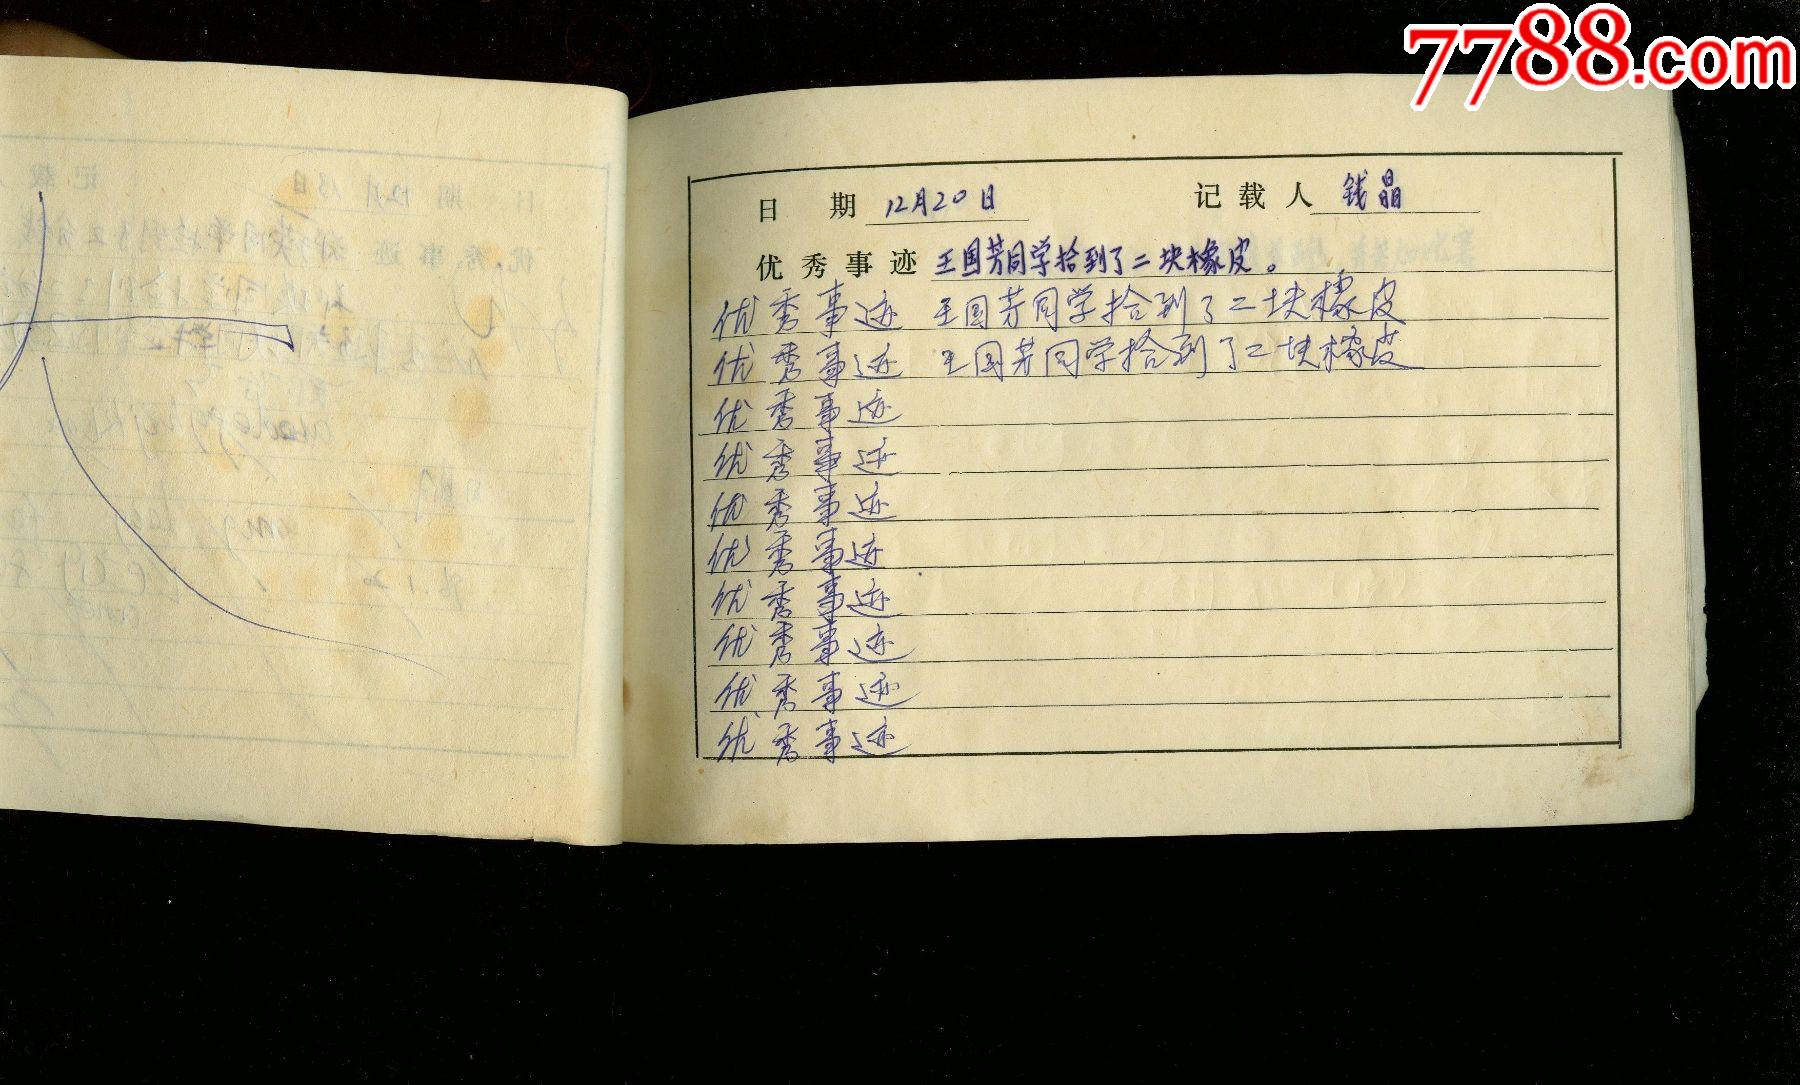 7788.com
日 期 12月20日 记载人 钱晶
优秀事迹 王国芳同学拾到了二块橡皮。
优秀事迹 王国芳同学拾到了二块橡皮
优秀事迹 王国芳同学拾到了二块橡皮
优秀事迹
优秀事迹
优秀事迹
优秀事迹
优秀事迹
优秀事迹
优秀事迹
优秀事迹